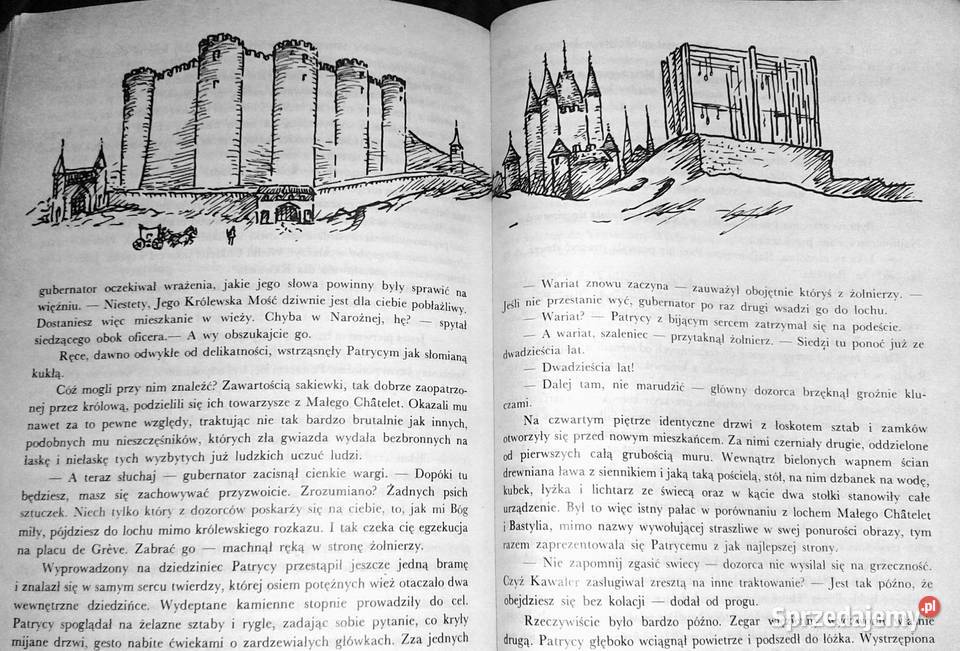 gubernator oczekiwał wrażenia, jakie jego słowa powinny były sprawić na
więźniu. — Niestety, Jego Królewska Mość dziwnie jest dla ciebie pobłażliwy.
Dostaniesz więc mieszkanie w wieży. Chyba w Narożnej, hę? — spytał
siedzącego obok oficera.— A wy obszukajcie go.
Ręce, dawno odwykłe od delikatności, wstrząsnęły Patrycym jak słomianą
kukłą.
Cóż mogli przy nim znaleźć? Zawartością sakiewki, tak dobrze zaopatrzo-
nej przez królową, podzielili się ich towarzysze z Małego Châtelet. Okazali mu
nawet za to pewne względy, traktując nie tak bardzo brutalnie jak innych,
podobnych mu nieszczęśników, których zła gwiazda wydała bezbronnych na
łaskę i niełaskę tych wyzbytych już ludzkich uczuć ludzi.
— A teraz słuchaj — gubernator zacisnął cienkie wargi. — Dopóki tu
będziesz, masz się zachowywać przyzwoicie. Zrozumiano? Żadnych psich
sztuczek. Niech tylko który z dozorców poskarży się na ciebie, to, jak mi Bóg
miły, pójdziesz do lochu mimo królewskiego rozkazu. I tak czeka cię egzekucja
na placu de Grève. Zabrać go — machnął ręką w stronę żołnierzy.
Wyprowadzony na dziedziniec Patrycy przestąpił jeszcze jedną bramę
i znalazł się w samym sercu twierdzy, której osiem potężnych wież otaczało dwa
wewnętrzne dziedzińce. Wydeptane kamienne stopnie prowadziły do cel.
Patrycy spoglądał na żelazne sztaby i rygle, zadając sobie pytanie, co kryły
mijane drzwi, gęsto nabite ćwiekami o zardzewiałych główkach. Zza jednych
— Wariat znowu zaczyna — zauważył obojętnie któryś z żołnierzy. —
Jeśli nie przestanie wyć, gubernator po raz drugi wsadzi go do lochu.
— Wariat? — Patrycy z bijącym sercem zatrzymał się na podeście.
— A wariat, szaleniec — przytaknął żołnierz. — Siedzi tu ponoć już ze
dwadzieścia lat.
— Dwadzieścia lat!
— Dalej tam, nie marudzić — główny dozorca brzęknął groźnie klu-
czami.
Na czwartym piętrze identyczne drzwi z łoskotem sztab i zamków
otworzyły się przed nowym mieszkańcem. Za nimi czerniały drugie, oddzielone
od pierwszych całą grubością muru. Wewnątrz bielonych wapnem ścian
drewniana ława z siennikiem i jaką taką pościelą, stół, na nim dzbanek na wodę,
kubek, łyżka i lichtarz ze świecą oraz w kącie dwa stołki stanowiły całe
urządzenie. Był to więc istny pałac w porównaniu z lochem Małego Châtelet
i Bastylia, mimo nazwy wywołującej straszliwe w swej ponurości obrazy, tym
razem zaprezentowała się Patrycemu z jak najlepszej strony.
— Nie zapomnij zgasić świecy — dozorca nie wysilał się na grzeczność.
Czyż Kawaler zasługiwał zresztą na inne traktowanie? — Jest tak późno, że
obejdziesz się bez kolacji — dodał od progu.
Rzeczywiście było bardzo późno. Zegar
drugą. Patrycy głęboko wciągnął powietrze i podszedł do łóżka. Wystrzępiona
Sprzedajemy.pl